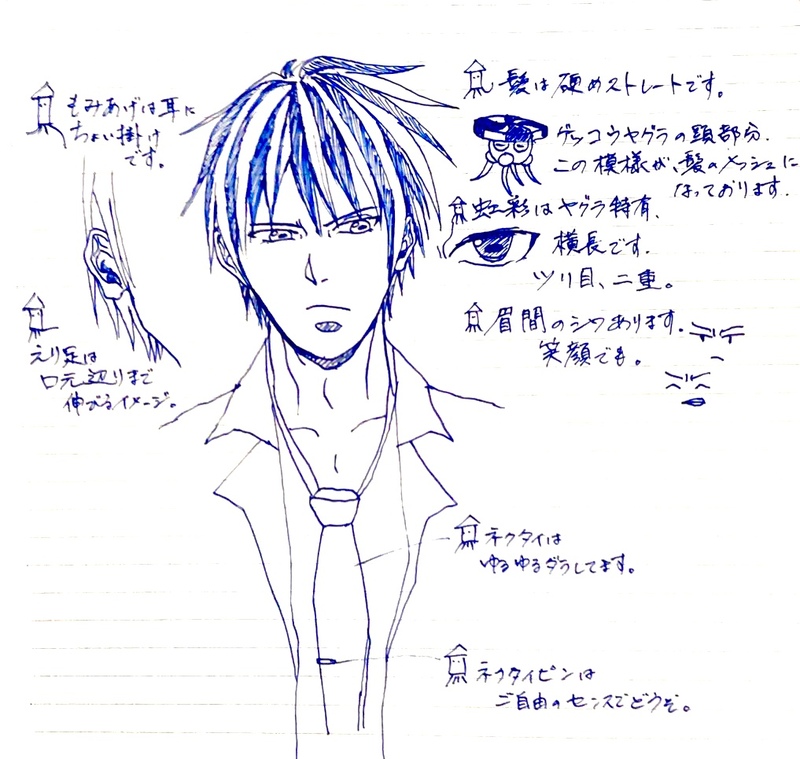 もみあげは耳に
ちょい掛け
です。
えり足は
口元辺りまで
伸びるイメージ。
髪は硬めストレートです。
ゲッコウヤグラの頭部分、
この模様が、髪のメッシュに
なっております。
虹彩はヤグラ特有、
横長です。
ツリ目、二重。
眉間のシワあります。
笑顔でも。
ネクタイは
ゆるゆるダラしてます。
ネクタイピンは
ご自由のセンスでどうぞ。